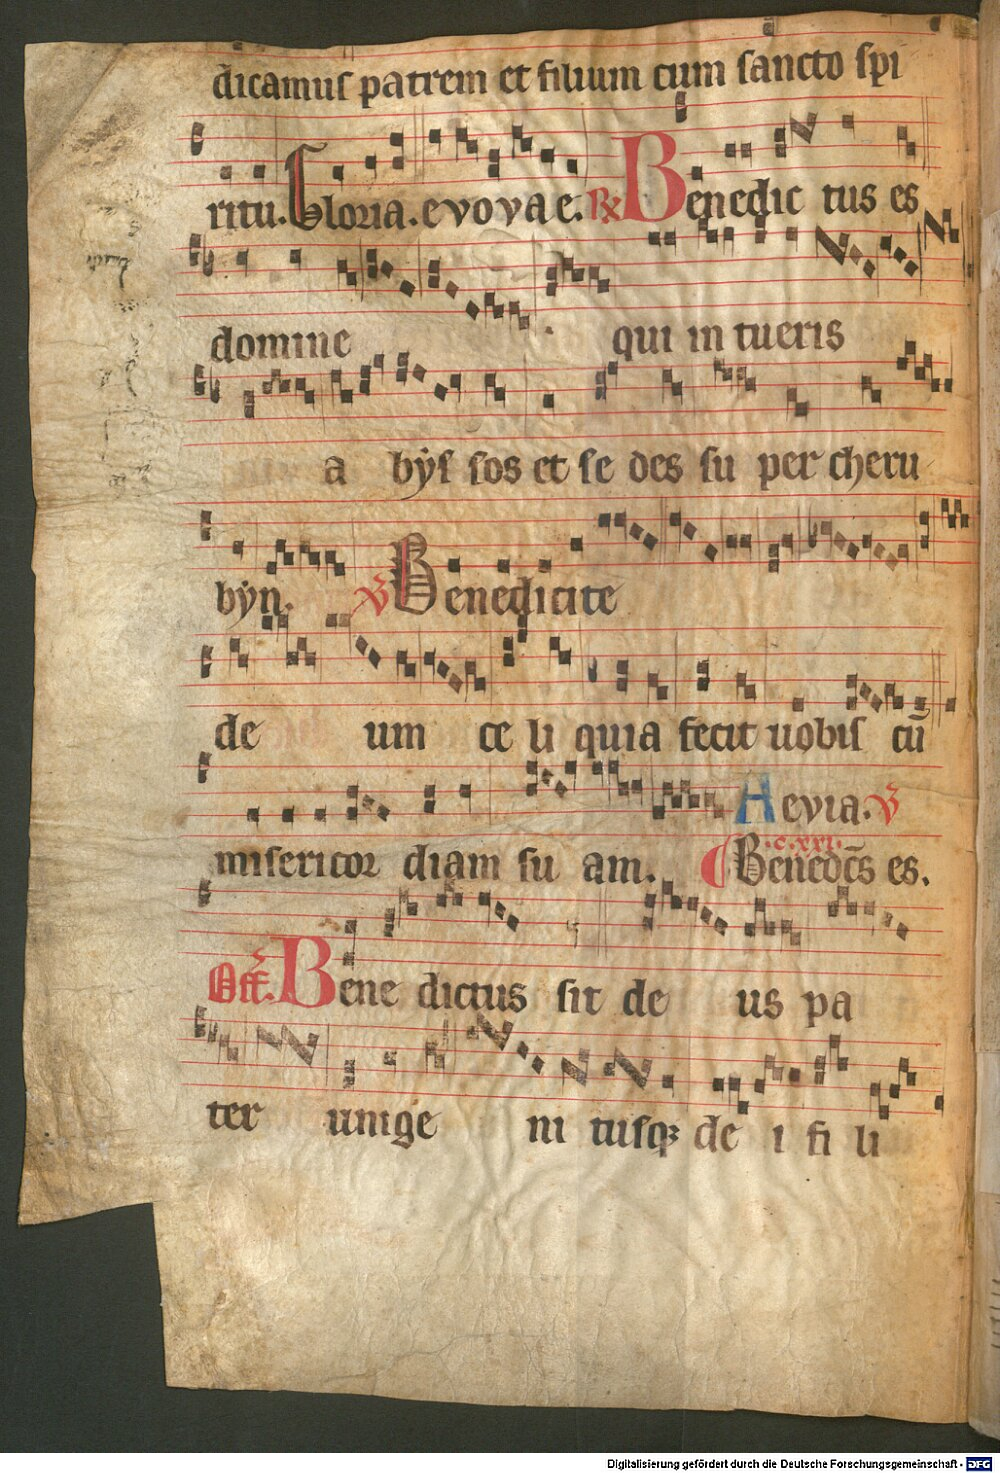 dicamus patrem et filium cum sancto spi
ritu. Gloria. evovae. R Benedic tus es
domine qui in tueris
a bÿs sos et se des su per cheru
bÿn. V Benedicite
de um ce li quia fecit uobis cū
Aevia. V
misericor diam su am. Benedc̄s es.
.c.xxi.
Off. Bene dictus sit de us pa
ter unige ni tusqꝫ de i fi li
Digitalisierung gefördert durch die Deutsche Forschungsgemeinschaft - DFG